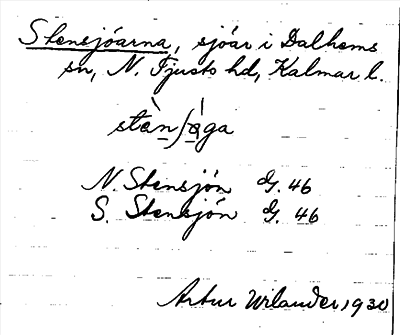 Stensjöarna, sjöar i Dalhems
sn, N. Tjusts hd, Kalmar l.
N. Stensjön dJ. 46
S. Stensjön dJ. 46
Artur Wilander, 1930